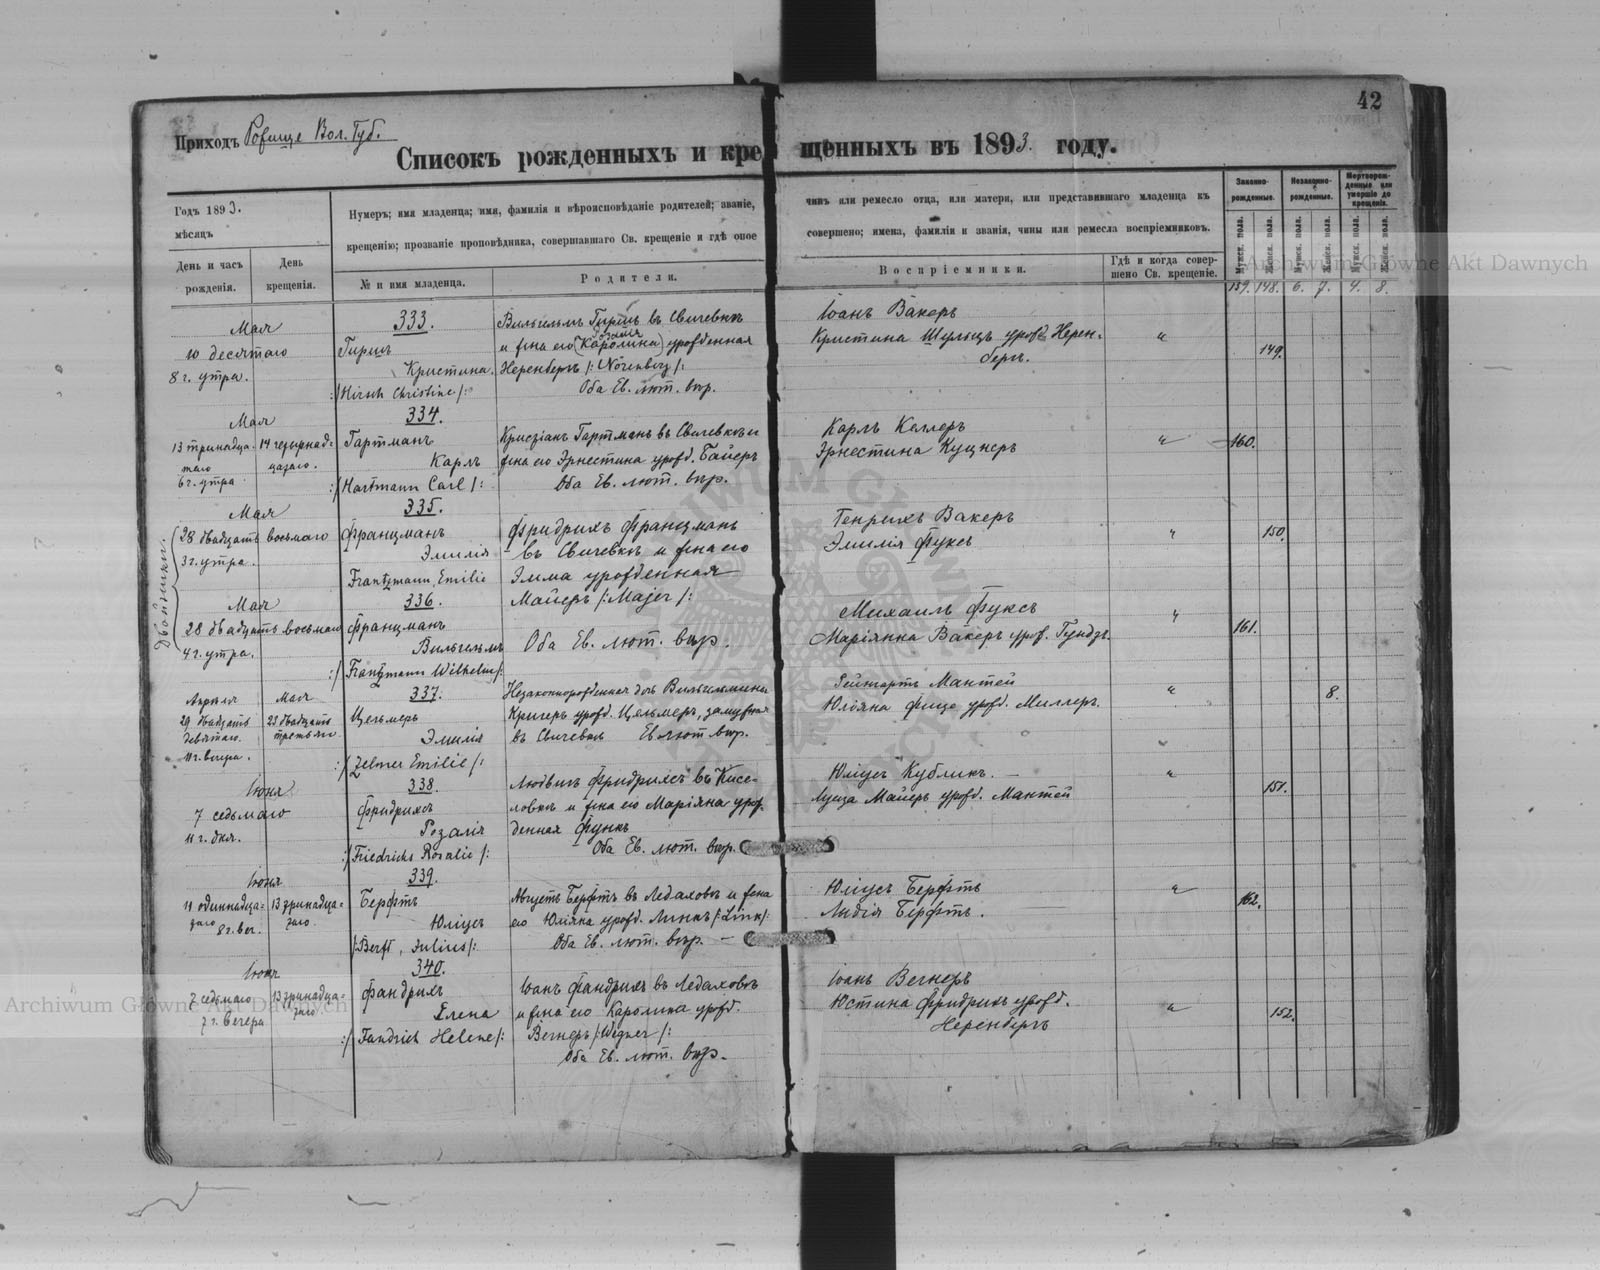 42
Приходъ Рофище Вол. Губ.
Списокъ рожденныхъ и крещенныхъ въ 1893. году.
Годъ 1893.
мѣсяцъ
День и часъ рожденія.
День крещенія.
Нумеръ; имя младенца; имя, фамилія и вѣроисповѣданіе родителей; званіе, чинъ или ремесло отца, или матери, или представившаго младенца къ
крещенію; прозваніе проповѣдника, совершавшаго Св. крещеніе и гдѣ оное совершено; имена, фамиліи и званія, чины или ремесла воспріемниковъ.
№ и имя младенца.
Родители.
Воспріемники.
Гдѣ и когда совершено Св. крещеніе.
Законно-рожденные.
Незаконно-рожденные.
Мертворожденные или умершіе до крещенія.
Мужск. пола. Женск. пола. Мужск. пола. Женск. пола. Мужск. пола. Женск. пола.
159. 148. 6. 7. 4. 8.
Мая
10 десятаго
8 г. утра.
333.
Гиршъ
Кристина.
:/Hirsch Christine/:
Вильгельмъ Гиршъ въ Свичевкѣ
и жена его (Каролина) урожденная
Неренбергъ /:Nörenberg/:
Оба Ев. лют. вѣр.
Іоанъ Вакеръ
Кристина Шульцъ урожд. Нерен-
бергъ.
"
149.
Мая
13 тринадца-
таго
6 г. утра
14 четырнад-
цатаго.
334.
Гартманъ
Карлъ
:/Hartmann Carl/:
Крисзіанъ Гартманъ въ Свичевкѣ и
жена его Эрнестина урожд. Байеръ
Оба Ев. лют. вѣр.
Карлъ Келлеръ
Эрнестина Куцнеръ
"
160.
Двойники.
Мая
28 двадцать восьмаго
3 г. утра.
335.
Францманъ
Эмилія
Frantzmann, Emilie
Фридрихъ Францманъ
въ Свичевкѣ и жена его
Эмма урожденная
Майеръ /:Majer/:
Оба Ев. лют. вѣр.
Генрихъ Вакеръ
Эмилія Фуксъ
"
150.
Мая
28 двадцать восьмаго
4 г. утра.
336.
Францманъ
Вильгельмъ
:/Frantzmann Wilhelm/:
Михаилъ Фуксъ
Маріянна Вакеръ урож. Гундъ.
"
161.
Апрѣля
29 двадцать
девятаго.
11 г. вечера.
Мая
23 двадцать
третьяго
337.
Цельмеръ
Эмилія
:/Zelmer Emilie/:
Незаконнорожденная дочь Вильгельмины
Кригеръ урожд. Цельмеръ, замужная
въ Свичевкѣ Ев лют вѣр.
Рейнгартъ Мантей
Юліяна Фище урожд. Миллеръ.
"
8.
Іюня
7 седьмаго
11 г. дня.
338.
Фридрихсъ
Розалія
:/Friedrichs Rosalie/:
Людвигъ Фридрихсъ въ Кисе-
ловкѣ и жена его Маріяна урож-
денная Функъ
Оба Ев. лют. вѣр.
Юліусъ Кубликъ.
Луиза Майеръ урожд. Мантей
"
151.
Іюня
11 одиннадца-
таго
8 г. веч.
13 тринадца-
таго.
339.
Берфтъ
Юліусъ
/:Berft, Julius/:
Августъ Берфтъ въ Ледаховкѣ и жена
его Юліяна урожд. Линкъ /:Link/:
Оба Ев. лют. вѣр.
Юліусъ Берфтъ
Лидія Берфтъ.
"
162.
Іюня
7 седьмаго
7 г. вечера
13 тринадца-
таго
340.
Фандрихъ
Елена
:/Fandrich Helene/:
Іоанъ Фандрихъ въ Ледаховкѣ
и жена его Каролина урожд.
Вегнеръ /:Wegner/:
Оба Ев. лют. вѣр.
Іоанъ Вегнеръ
Юстина Фридрихъ урожд.
Неренбергъ
"
152.
Archiwum Główne Akt Dawnych
Archiwum Główne Akt Dawnych